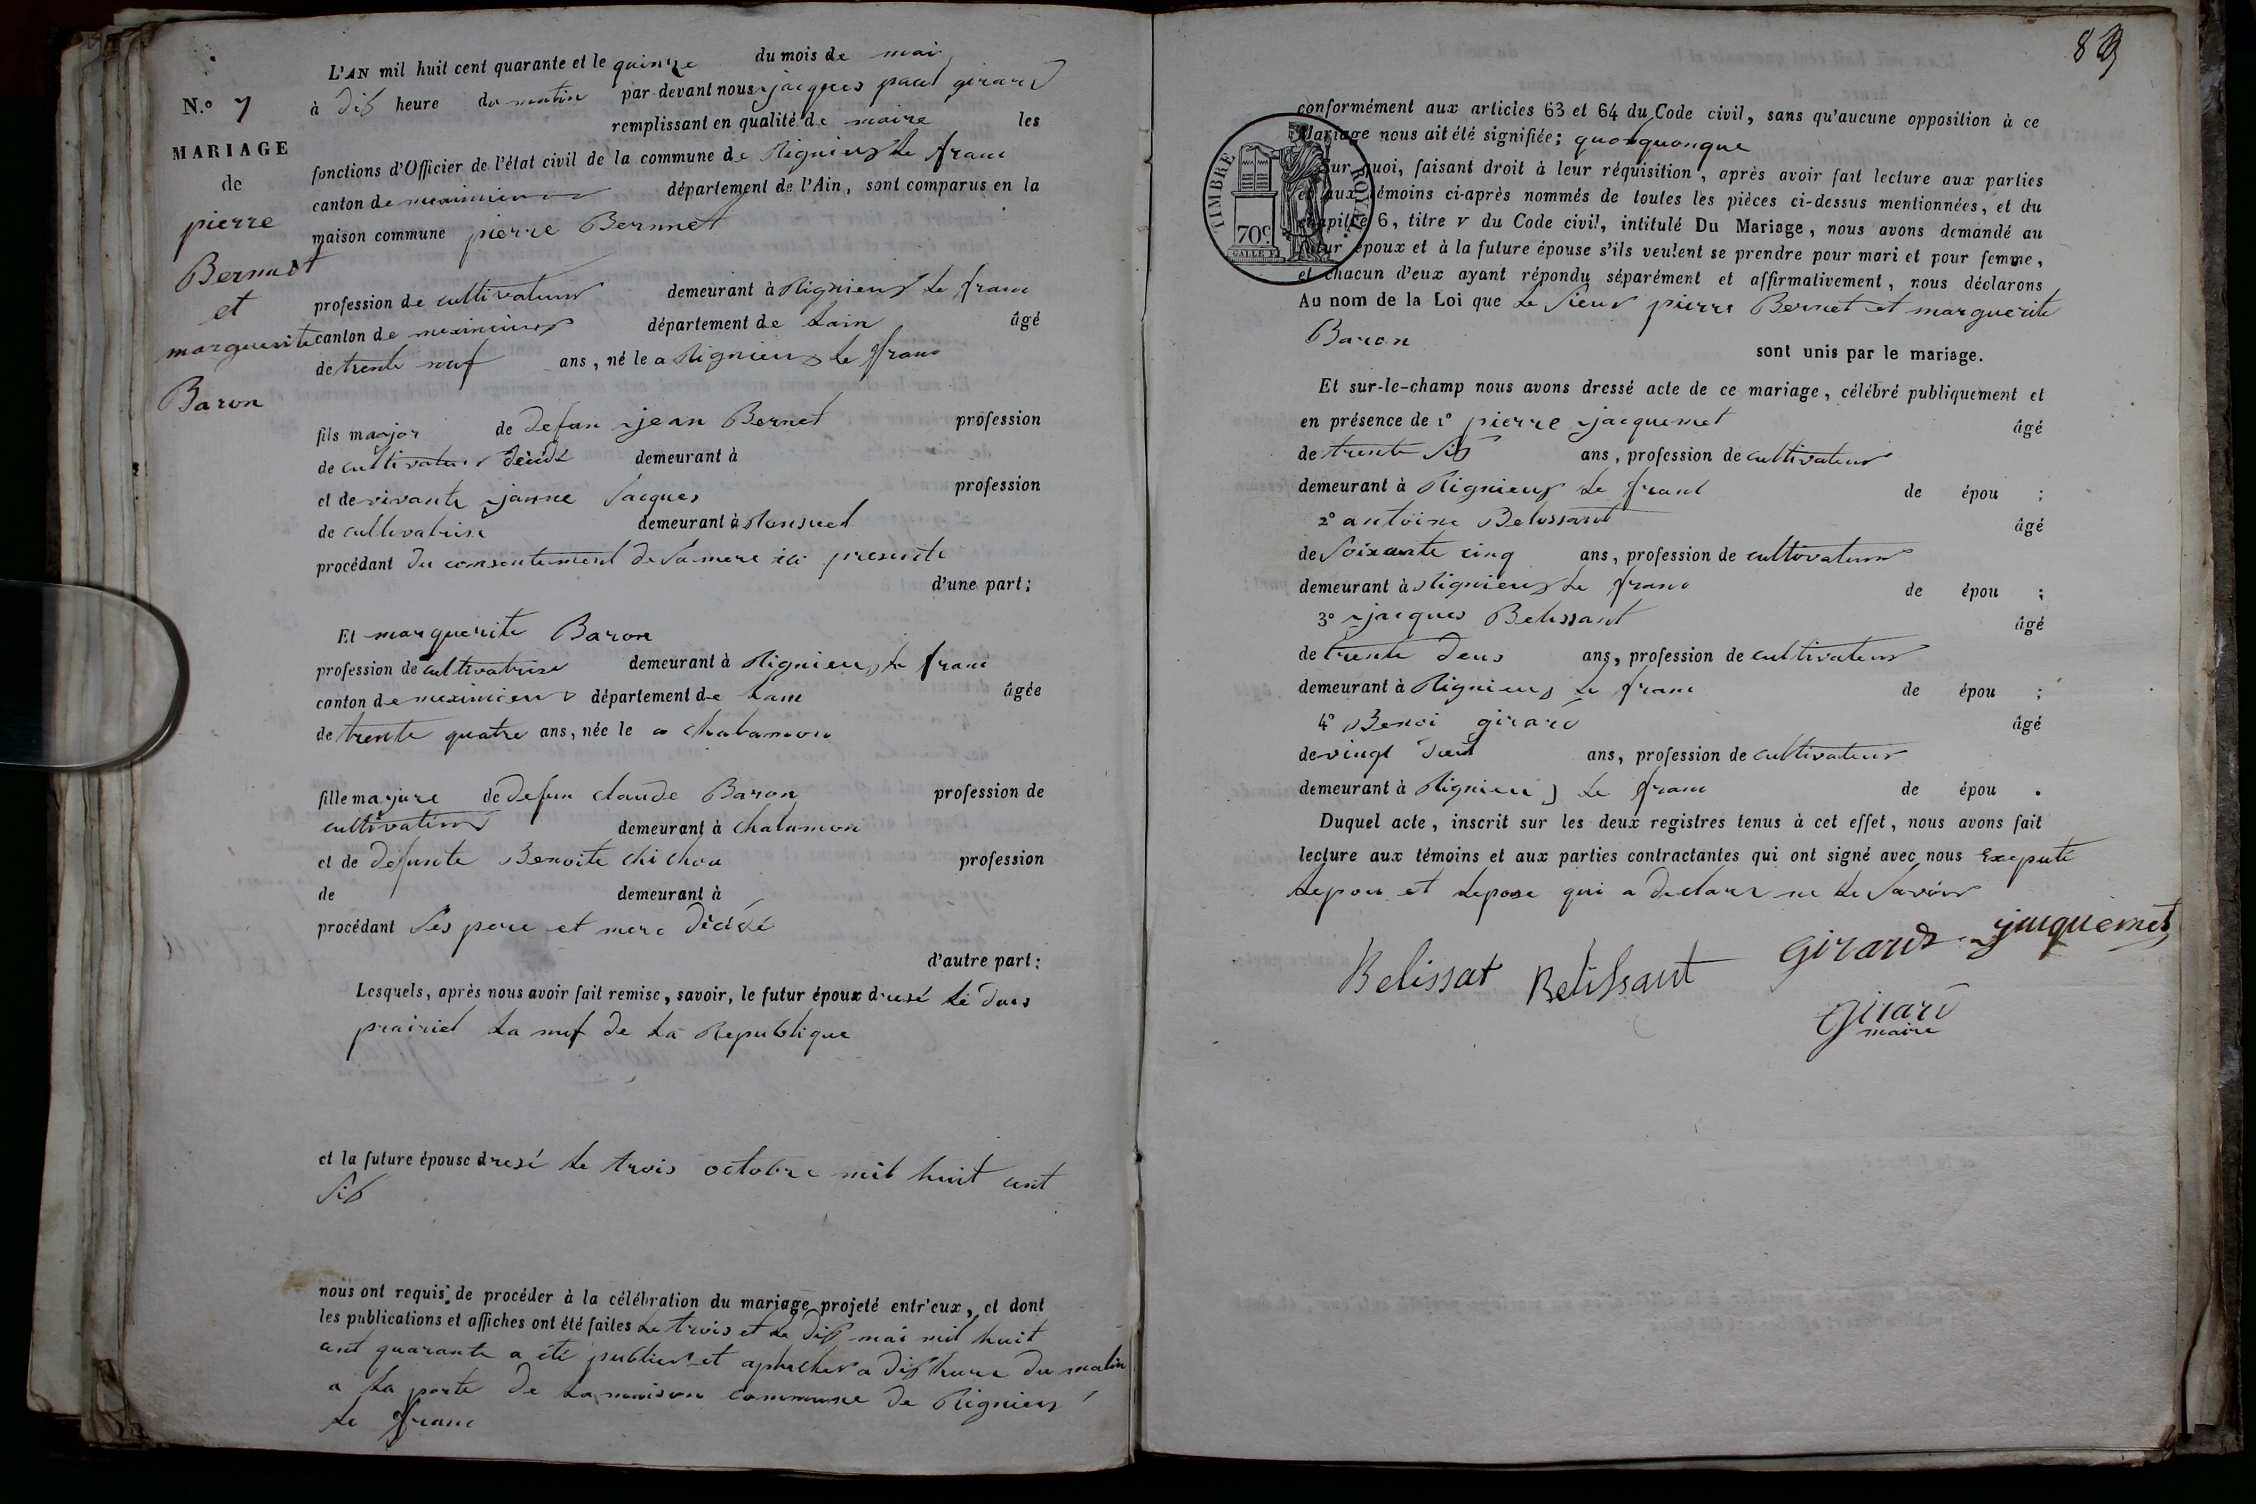 N.º 7
MARIAGE
de
pierre
Bernnet
et
marguerite
Baron
L'AN mil huit cent quarante et le quinze du mois de mai
à dis heure du matin par-devant nous jacques paul girard
remplissant en qualité de maire les
fonctions d'Officier de l'état civil de la commune de Rignieux le franc
canton de meximieux département de l'Ain, sont comparus en la
maison commune pierre Bernnet
profession de cultivateur demeurant à Rignieux le franc
canton de meximieux département de Lain âgé
de trente neuf ans, né le a Rignieux le franc
fils major de defun jean Bernet profession
de cultivateur décidé demeurant à
et de vivante janne Jacques profession
de cultivatrise demeurant à Ronsuel
procédant du consentement de sa mere ici presente
d'une part;
Et marguerite Baron
profession de cultivatrise demeurant à Rignieux le franc
canton de meximieux département de Lain âgée
de trente quatre ans, née le a chalamon
fille majure de defun claude Baron profession de
cultivateur demeurant à chalamon
et de defunte Benoite chichou profession
de demeurant à
procédant ses pere et mere décédé
d'autre part:
Lesquels, après nous avoir fait remise, savoir, le futur époux dresé le dous
prairiel la nuf de la Republique
et la future épouse dresé le trois octobre mil huit cent
sis
nous ont requis de procéder à la célébration du mariage projeté entr'eux, et dont
les publications et affiches ont été faites le trois et le dis mai mil huit
cent quarante a été publier et aphicher a dis heure du matin
a la porte de la maison commune de Rignieux
le franc
83
conformément aux articles 63 et 64 du Code civil, sans qu'aucune opposition à ce
Mariage nous ait été signifiée; quosquonque
Sur quoi, faisant droit à leur réquisition, après avoir fait lecture aux parties
et aux témoins ci-après nommés de toutes les pièces ci-dessus mentionnées, et du
chapitre 6, titre v du Code civil, intitulé Du Mariage, nous avons demandé au
futur époux et à la future épouse s'ils veulent se prendre pour mari et pour femme,
et chacun d'eux ayant répondu séparément et affirmativement, nous déclarons
Au nom de la Loi que le sieur pierre Bernet et marguerite
Baron
sont unis par le mariage.
TIMBRE ROYAL
70c
Et sur-le-champ nous avons dressé acte de ce mariage, célébré publiquement et
en présence de 1º pierre jacquemet âgé
de trente sis ans, profession de cultivateur
demeurant à Rignieux le franc de épou ;
2º antoine Belissant âgé
de soixante cinq ans, profession de cultivateur
demeurant à Rignieux le franc de épou ;
3º jacques Belissant âgé
de trente deus ans, profession de cultivateur
demeurant à Rignieux le franc de épou ;
4º Benoi girard âgé
de vingt ans, profession de cultivateur
demeurant à Rignieux le franc de épou .
Duquel acte, inscrit sur les deux registres tenus à cet effet, nous avons fait
lecture aux témoins et aux parties contractantes qui ont signé avec nous Exepute
Lepou et Lepose qui a declare ne le savoir
Belissat Belissant girard jacquemet
Girard
maire